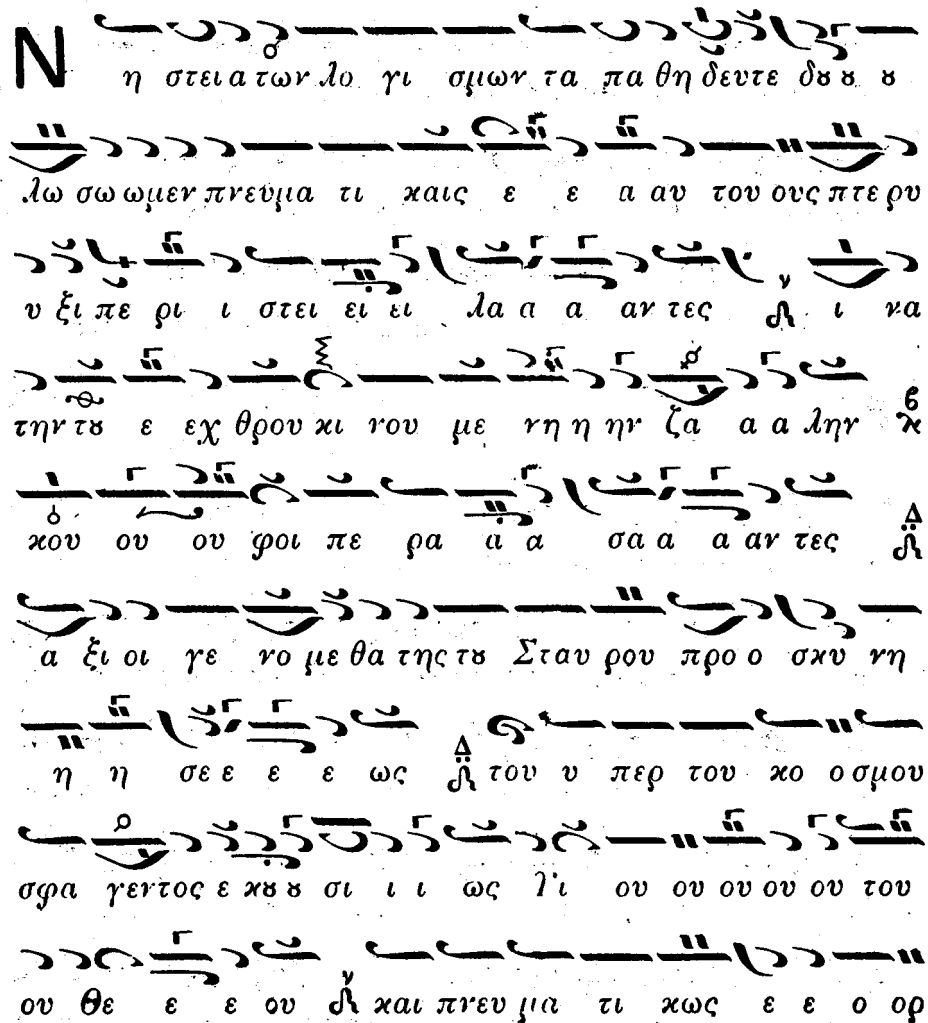 Ν η στει α των λο γι σμων τα πα θη δευτε δȣ ȣ ȣ
λω σω ωμεν πνευμα τι και ς ε ε α αυ του ους πτε ρυ
υ ξι πε ρι ι στει ει ει λα α α αν τες ι να
την τȣ ε εχ θρου κι νου με νη η ην ζα α α λην
κου ου ου φοι πε ρα α α σα α α αν τες Δ
α ξι οι γε νο με θα της τȣ Σταυ ρου προ ο σκυ νη
η η σε ε ε ε ως Δ του υ περ του κο ο σμου
σφα γεντος ε κȣ ȣ σι ι ι ως Υι ου ου ου ου ου του
ου Θε ε ε ου και πνευ μα τι κως ε ε ο ορ